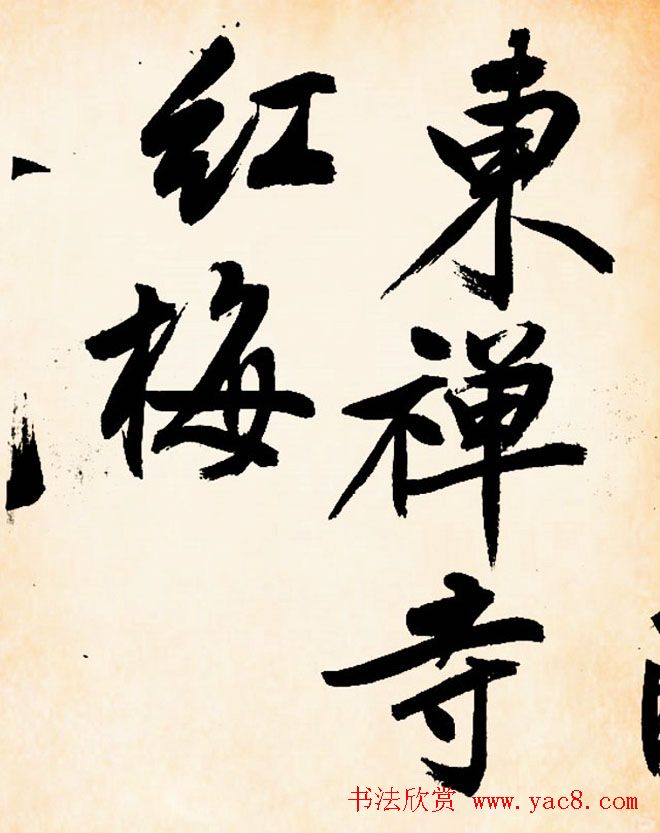 東禅寺
红梅
书法欣赏 www.yac8.com